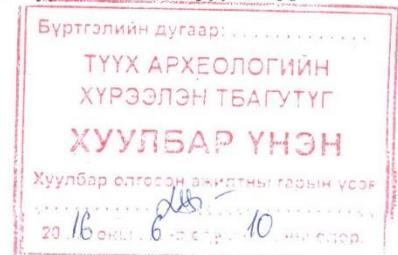 Бүртгэлийн дугаар: . . . . . . . . . . . . .
ТҮҮХ АРХЕОЛОГИЙН
ХҮРЭЭЛЭН ТБАГУТҮГ
ХУУЛБАР ҮНЭН
Хуулбар олгосон ажилтны гарын үсэг
20 16 оны 6 -р сар 10 -ны өдөр.